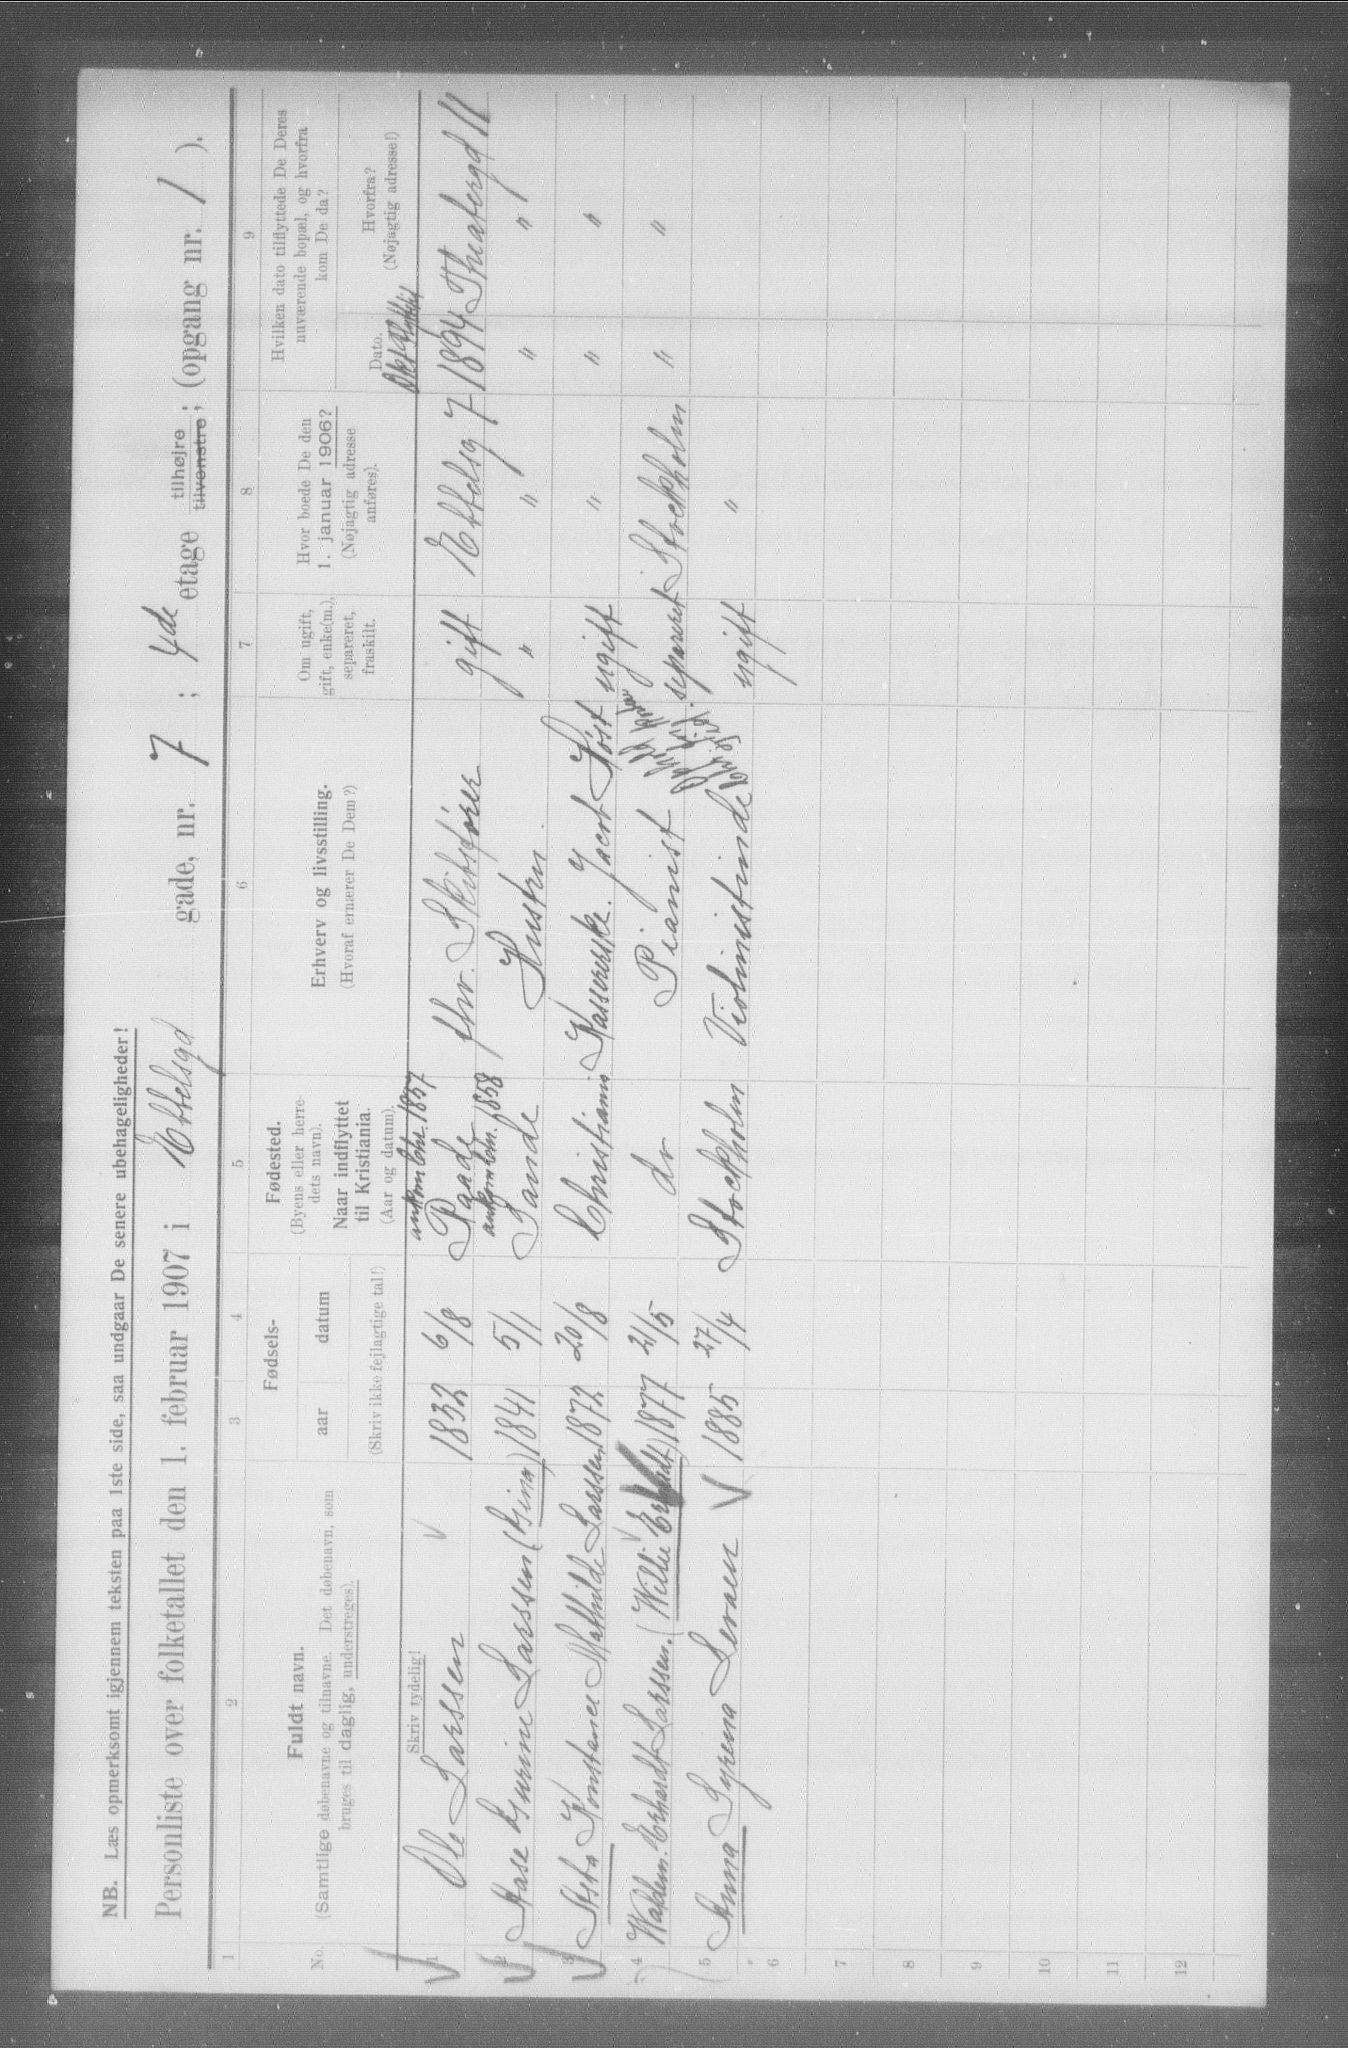 NB. Læs opmerksomt igjennem teksten paa 1ste side, saa undgaar De senere ubehageligheder!
Personliste over folketallet den 1. februar 1907 i Ebbelsgd gade, nr. 7; 4de etage tilhøjre tilvenstre; (opgang nr. 1).
1 2 3 4 5 6 7 8 9
No. Fuldt navn. (Samtlige døbenavne og tilnavne. Det døbenavn, som bruges til daglig, understreges). Skriv tydelig!
Fødsels- aar datum (Skriv ikke fejlagtige tal!)
Fødested. (Byens eller herredets navn). Naar indflyttet til Kristiania. (Aar og datum).
Erhverv og livsstilling. (Hvoraf ernærer De Dem?)
Om ugift, gift, enke(m.), separeret, fraskilt.
Hvor boede De den 1. januar 1906? (Nøjagtig adresse anføres).
Hvilken dato tilflyttede De Deres nuværende bopæl, og hvorfra kom De da? Dato. Hvorfra? (Nøjagtig adresse!)
1 Ole Larssen 1832 6/8 1857 fhv. Skibsfører gift Ebbelsg 7 1894 Theatergd 11
2 Aase Larssen 1841 5/1 Sande 1858 Hustru " " " "
3 Asta Konstance Mathilde Larssen 1872 20/8 Christiania Kassererske. Jacob Høst ugift " " "
4 Waldem. Erhardt Larssen. (Willie Erhardt) 1877 21/5 do Pianist separeret Stockholm " "
5 Anna Syrena 1885 27/4 Stockholm Violinistinde ugift "
6
7
8
9
10
11
12